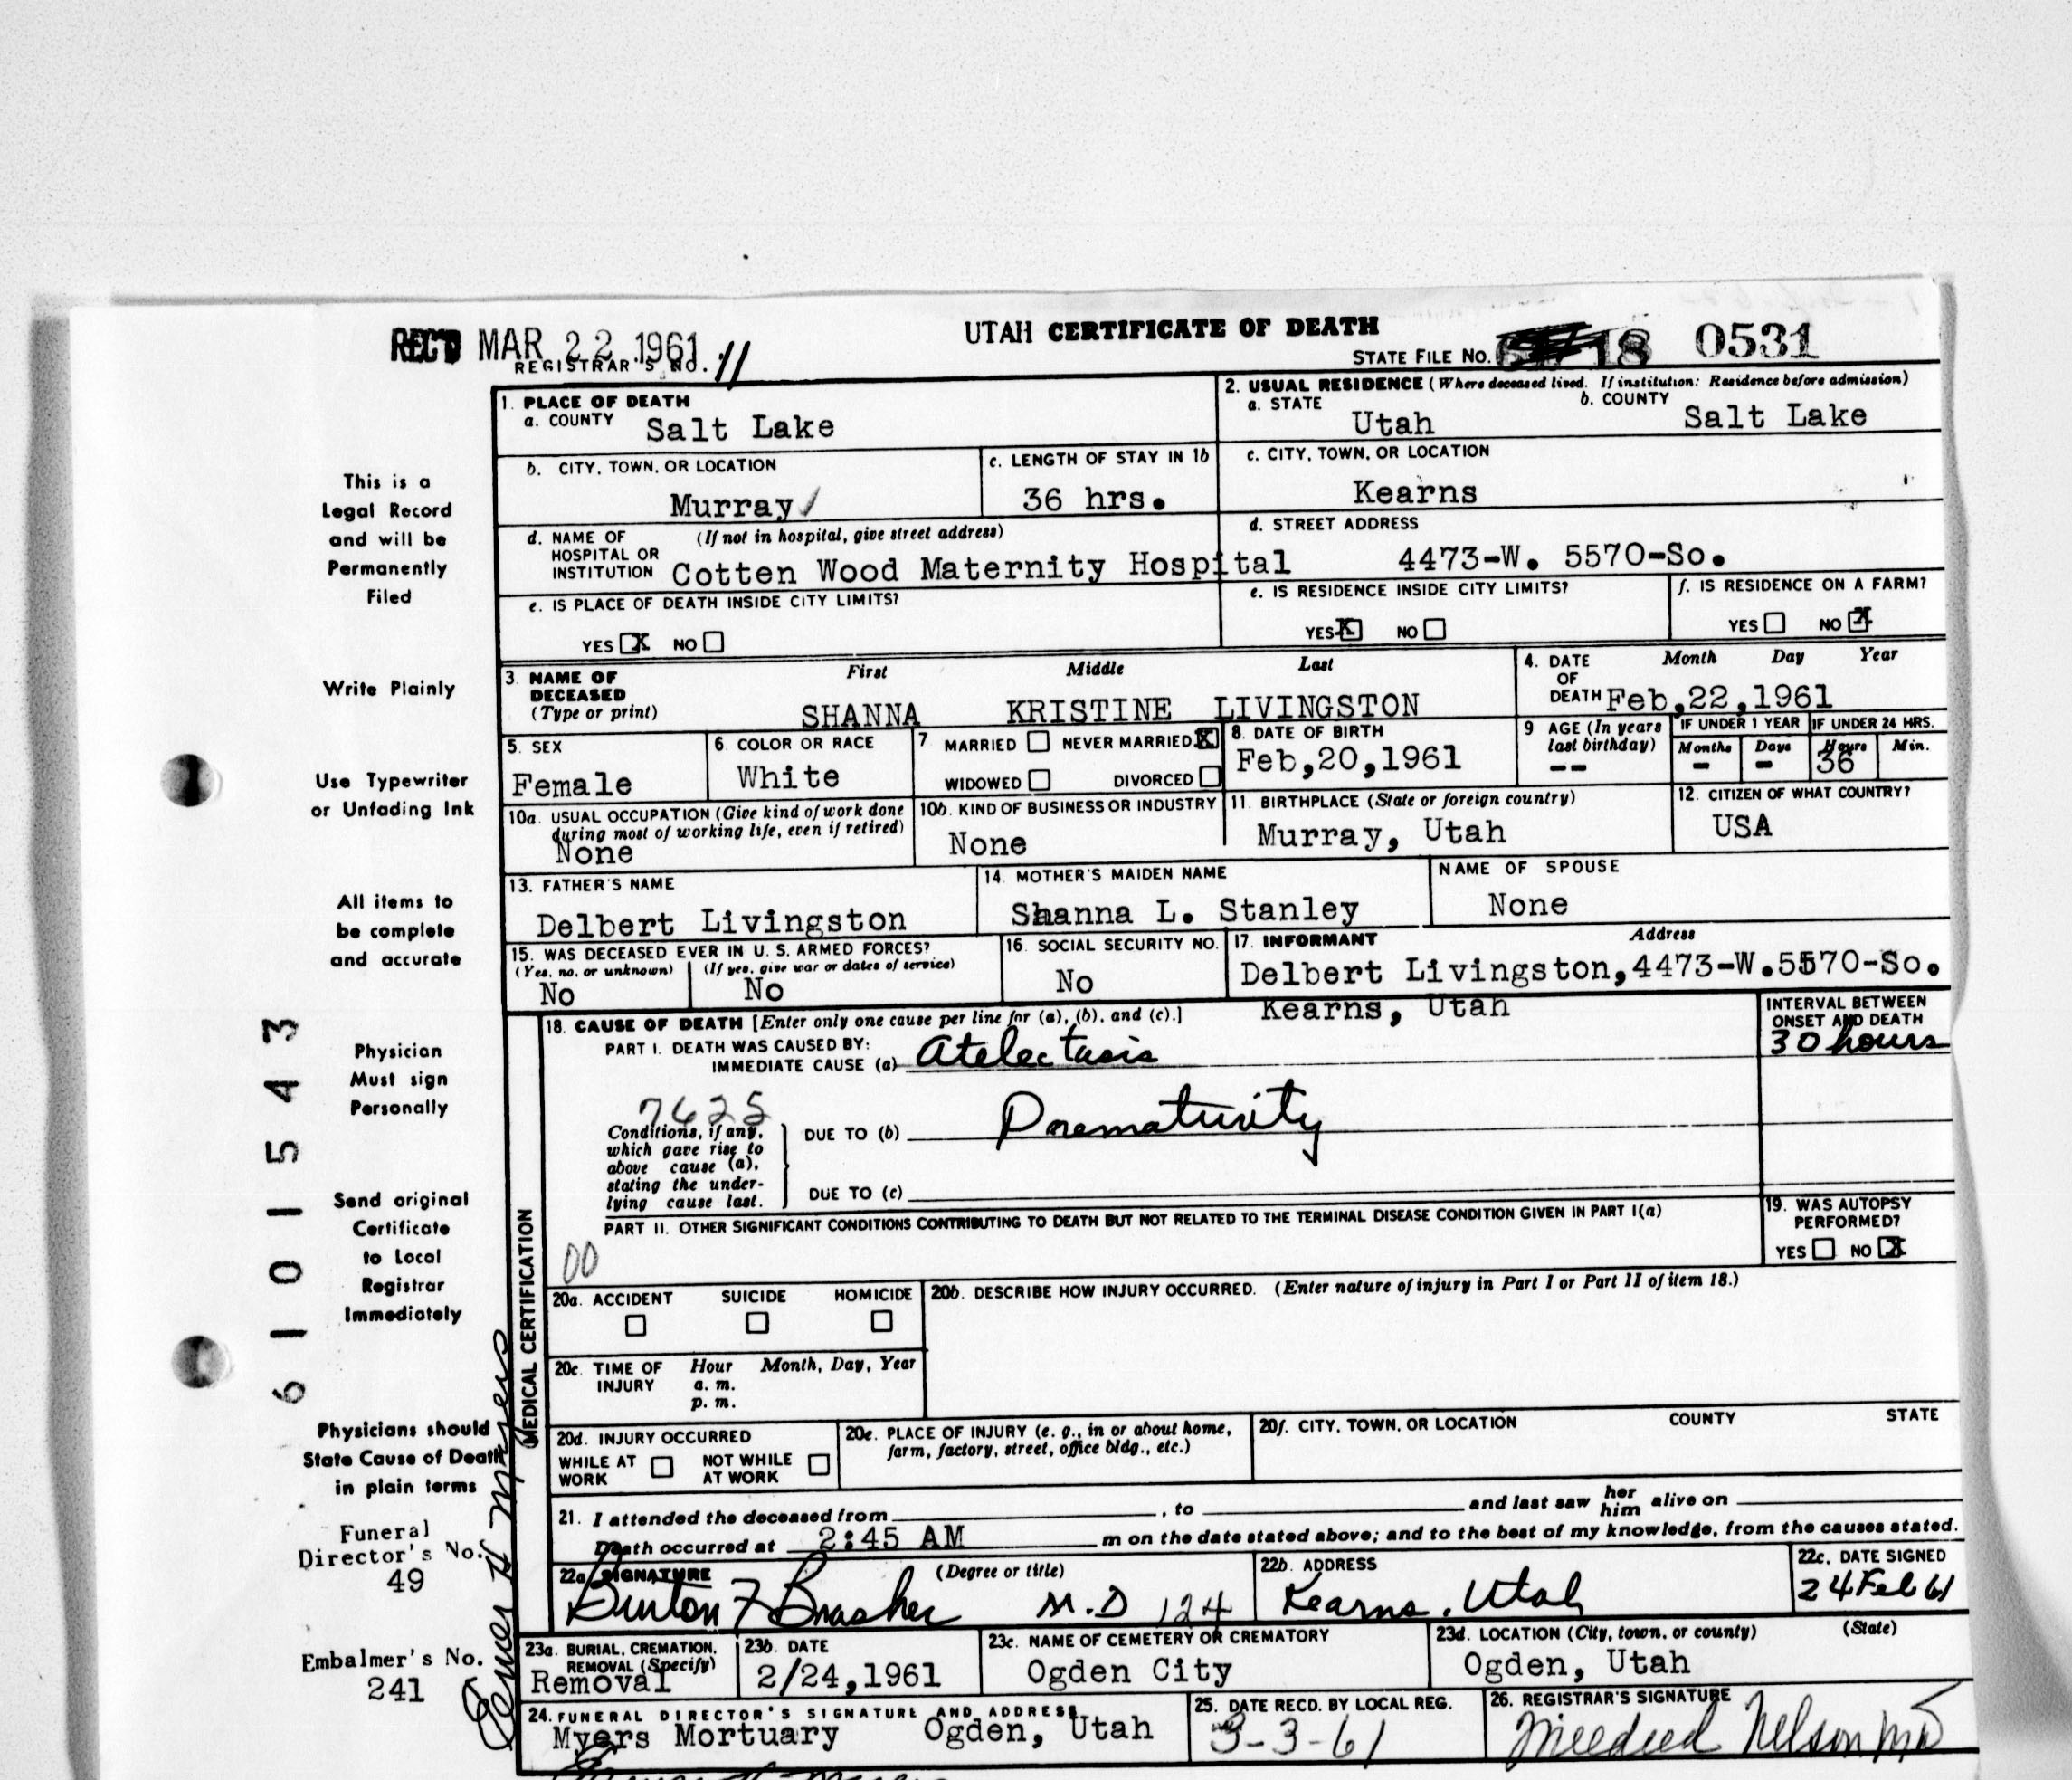 REC'D MAR 22 1961
UTAH CERTIFICATE OF DEATH
REGISTRAR'S NO. 11
STATE FILE NO. 18 0531
1. PLACE OF DEATH
a. COUNTY Salt Lake
2. USUAL RESIDENCE (Where deceased lived. If institution: Residence before admission)
a. STATE Utah b. COUNTY Salt Lake
b. CITY, TOWN, OR LOCATION Murray
c. LENGTH OF STAY IN 1b 36 hrs.
c. CITY, TOWN, OR LOCATION Kearns
d. NAME OF HOSPITAL OR INSTITUTION (If not in hospital, give street address)
Cotten Wood Maternity Hospital
d. STREET ADDRESS
4473-W. 5570-So.
e. IS PLACE OF DEATH INSIDE CITY LIMITS?
YES X NO
e. IS RESIDENCE INSIDE CITY LIMITS?
YES X NO
f. IS RESIDENCE ON A FARM?
YES NO X
3. NAME OF DECEASED (Type or print)
First Middle Last
SHANNA KRISTINE LIVINGSTON
4. DATE OF DEATH Month Day Year
Feb,22,1961
5. SEX
Female
6. COLOR OR RACE
White
7 MARRIED NEVER MARRIED X
WIDOWED DIVORCED
8. DATE OF BIRTH
Feb,20,1961
9 AGE (In years last birthday)
--
IF UNDER 1 YEAR
Months Days
- -
IF UNDER 24 HRS.
Hours Min.
36
10a. USUAL OCCUPATION (Give kind of work done during most of working life, even if retired)
None
10b. KIND OF BUSINESS OR INDUSTRY
None
11. BIRTHPLACE (State or foreign country)
Murray, Utah
12. CITIZEN OF WHAT COUNTRY?
USA
13. FATHER'S NAME
Delbert Livingston
14. MOTHER'S MAIDEN NAME
Shanna L. Stanley
NAME OF SPOUSE
None
15. WAS DECEASED EVER IN U. S. ARMED FORCES?
(Yes, no, or unknown) (If yes, give war or dates of service)
No No
16. SOCIAL SECURITY NO.
No
17. INFORMANT Address
Delbert Livingston,4473-W.5570-So.
Kearns, Utah
18. CAUSE OF DEATH [Enter only one cause per line for (a), (b), and (c).]
INTERVAL BETWEEN ONSET AND DEATH
PART I. DEATH WAS CAUSED BY:
IMMEDIATE CAUSE (a) Atelectasis
30 hours
7625
Conditions, if any, which gave rise to above cause (a), stating the underlying cause last.
DUE TO (b) Prematurity
DUE TO (c)
PART II. OTHER SIGNIFICANT CONDITIONS CONTRIBUTING TO DEATH BUT NOT RELATED TO THE TERMINAL DISEASE CONDITION GIVEN IN PART I(a)
00
19. WAS AUTOPSY PERFORMED?
YES NO X
20a. ACCIDENT SUICIDE HOMICIDE
20b. DESCRIBE HOW INJURY OCCURRED. (Enter nature of injury in Part I or Part II of item 18.)
20c. TIME OF INJURY Hour Month, Day, Year
a. m.
p. m.
20d. INJURY OCCURRED
WHILE AT WORK NOT WHILE AT WORK
20e. PLACE OF INJURY (e. g., in or about home, farm, factory, street, office bldg., etc.)
20f. CITY, TOWN, OR LOCATION COUNTY STATE
21. I attended the deceased from , to and last saw her him alive on
Death occurred at 2:45 AM m on the date stated above; and to the best of my knowledge, from the causes stated.
22a. SIGNATURE (Degree or title)
Burton F Brasher M.D 124
22b. ADDRESS
Kearns, Utah
22c. DATE SIGNED
24 Feb 61
23a. BURIAL, CREMATION, REMOVAL (Specify)
Removal
23b. DATE
2/24,1961
23c. NAME OF CEMETERY OR CREMATORY
Ogden City
23d. LOCATION (City, town, or county) (State)
Ogden, Utah
24. FUNERAL DIRECTOR'S SIGNATURE AND ADDRESS
Myers Mortuary Ogden, Utah
25. DATE RECD. BY LOCAL REG.
3-3-61
26. REGISTRAR'S SIGNATURE
Mildred Nelson MD
MEDICAL CERTIFICATION
This is a
Legal Record
and will be
Permanently
Filed
Write Plainly
Use Typewriter
or Unfading Ink
All items to
be complete
and accurate
Physician
Must sign
Personally
Send original
Certificate
to Local
Registrar
Immediately
Physicians should
State Cause of Death
in plain terms
Funeral
Director's No.
49
Embalmer's No.
241
6101543